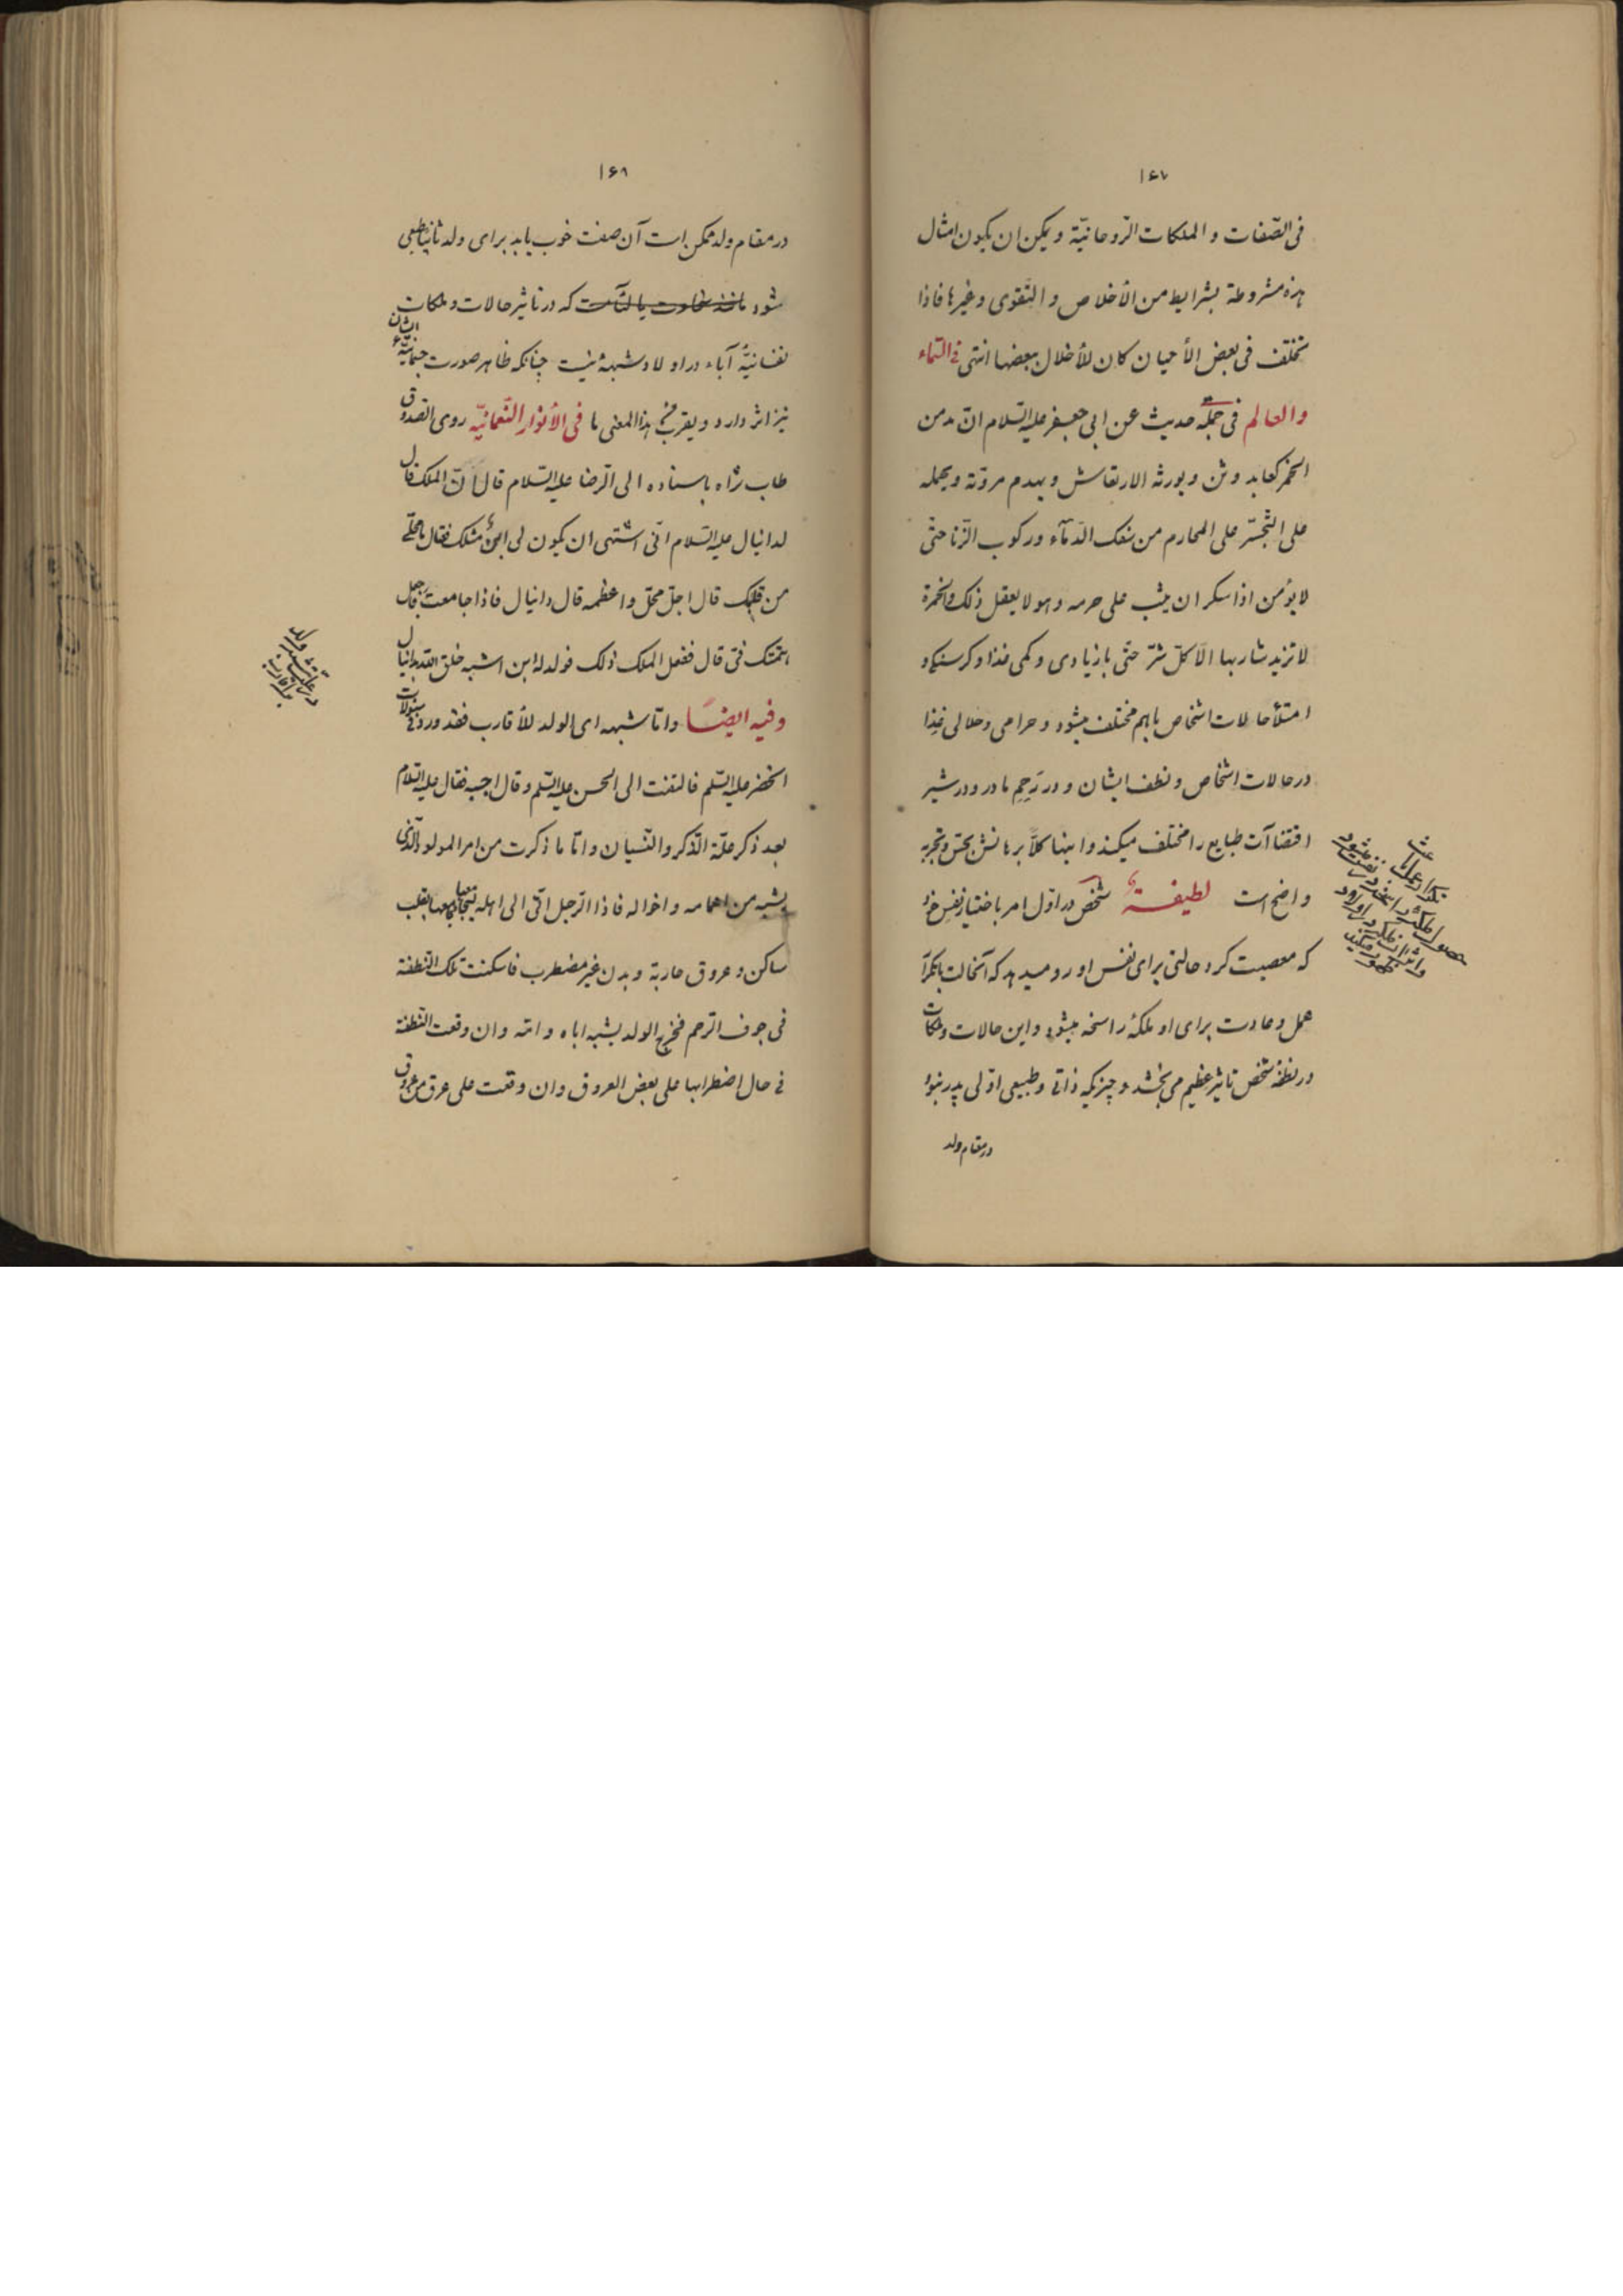 ۱۶۷
فی الصّفات و الملکات الرّوحانیّة و یمکن ان یکون امثال
هذه مشروطة بشرایط من الأخلاص و التّقوی و غیرها فاذا
تخلّف فی بعض الأحیان کان للأخلال ببعضها انتهی فی السّماء
والعالم فی جملة حدیث عن ابی جعفر علیه السّلام انّ مدمن
الخمر کعابد وثن و یورثه الارتعاش و یهدم مروّته و یحمله
علی التّجسّر علی المحارم من سفک الدّمآء و رکوب الزّنا حتّی
لا یؤمن اذا سکر ان یثب علی حرمه و هو لا یعقل ذلک والخمرة
لا تزید شاربها الّا کلّ شرّ حتّی با زیادی و کمی غذا و کرسنکی و
امتلأ حالات اشخاص باهم مختلف میشود و حرامی و حلالی غذا
در حالات اشخاص و نطف ایشان و در رَحِم مادر و در شیر
اقتضاآت طبایع را مختلف میکند و اینها کلاًّ برهانش بحسّ و تجربه
واضح است لطیفةٌ شخص در اوّل امر باختیار نفس خود
که معصیت کرد حالتی برای نفس او رو میدهد که آنحالت بتکرار
عمل و عادت برای او ملکهٔ راسخه میشود و این حالات و ملکات
در نطفهٔ شخص تاثیر عظیم می بخشد و چیزیکه ذاتی و طبیعی اوّلی پدر نبود
در مقام ولد
۱۶۸
در مقام ولد ممکن است آن صفت خوب یا بد برای ولد ثانیاً طبیعی
شود مانند سخاوت یا لئآمت که در تاثیر حالات و ملکات
نفسانیّهٔ آباء در اولاد شبههٔ نیست چنانکه ظاهر صورت جسمانیّهٔ ایشان
نیز اثر دارد و یقرب من هذا المعنی ما فی الأنوار النّعمانیّة روی الصّدوق
طاب ثراه باسناده الی الرّضا علیه السّلام قال انّ الملک قال
لدانیال علیه السّلام انّی اشتهی ان یکون لی ابنٌ مثلک فقال ما محلّی
من قلبک قال اجلّ محلّ و اعظمه قال دانیال فاذا جامعت فاجعل
همّتک فیّ قال ففعل الملک ذلک فولد له ابن اشبه خلق الله بدانیال
وفیه ایضاً و امّا شبهه ای الولد للأقارب فقد ورد فی سئوالات
الخضر علیه السّلم فالتفت الی الحسن علیه السّلم و قال اجبه فقال علیه السّلام
بعد ذکر علّة الذّکر والنّسیان و امّا ما ذکرت من امر المولود الّذی
یشبه من اعمامه و اخواله فاذا الرّجل اتی الی اهله لیجامعها بقلب
ساکن و عروق هادیة و بدن غیر مضطرب فاسکنت تلک النّطفة
فی جوف الرّحم فخرج الولد یشبه اباه و امّه و ان وقعت النّطفة
فی حال اضطرابها علی بعض العروق و ان وقعت علی عرق من عروق